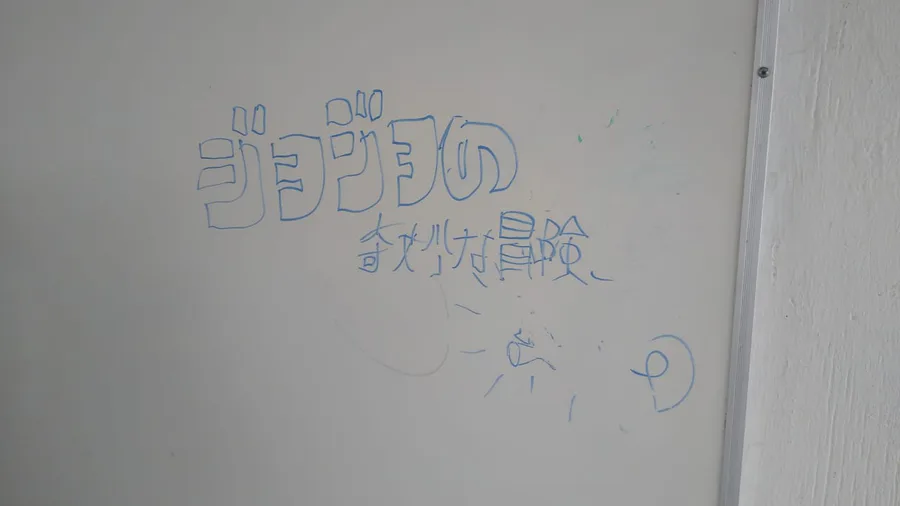 ジョジョの
奇妙な冒険